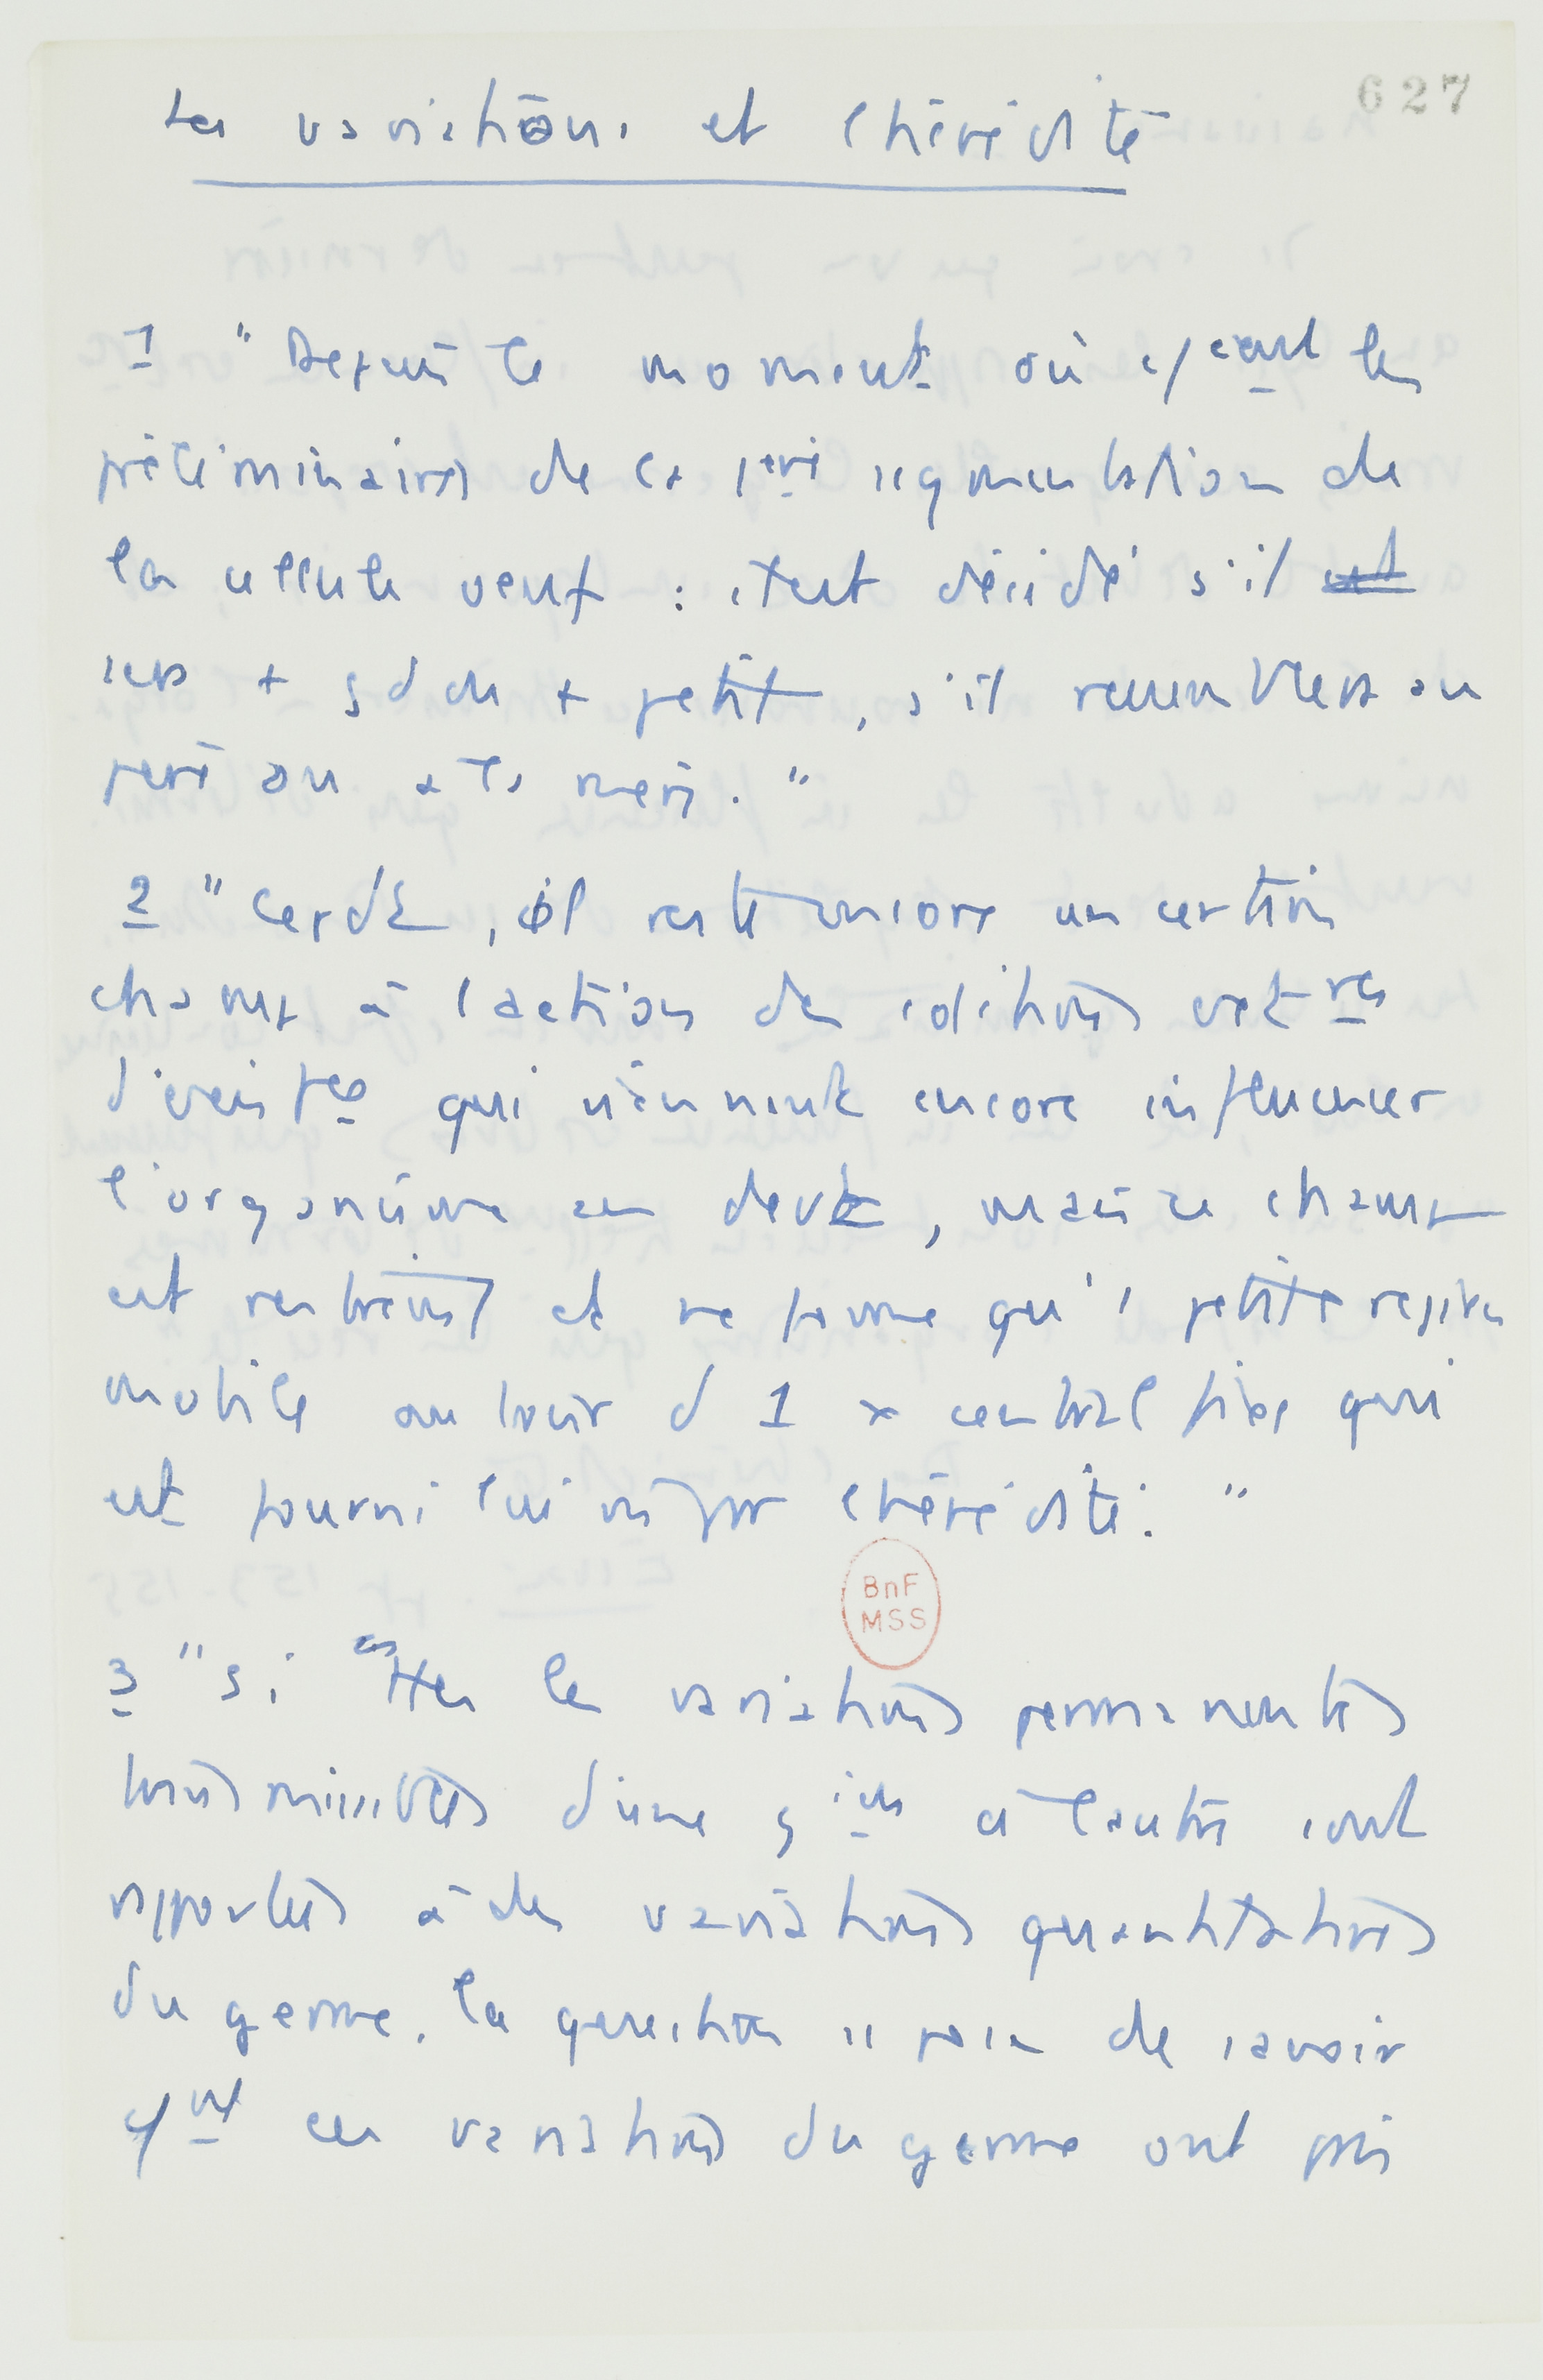 627
Les variations et l'hérédité
1 "Depuis le moment où c/çant les
préliminaires de la 1ère segmentation de
la cellule oeuf : c'est décidé s'il est
sera + gd ou + petit, s'il ressemblera au
père ou à la mère."
2 "Cepdt, il reste encore un certain
champ à l'action des cditions extres
diverses qui viennent encore influencer
l'organisme en devt, mais ce champ
est restreint et ne forme qu'1 petite
mobile autour d 1 x central fixe qui
est fourni lui m̂ par l'hérédité."
BnF
MSS
3 "si ttes les variations permanentes
transmissibles d'une gion à l'autre sont
rapportées à des variations quantitatives
du germe, la question se pose de savoir
cmt ces variations du germe ont pris